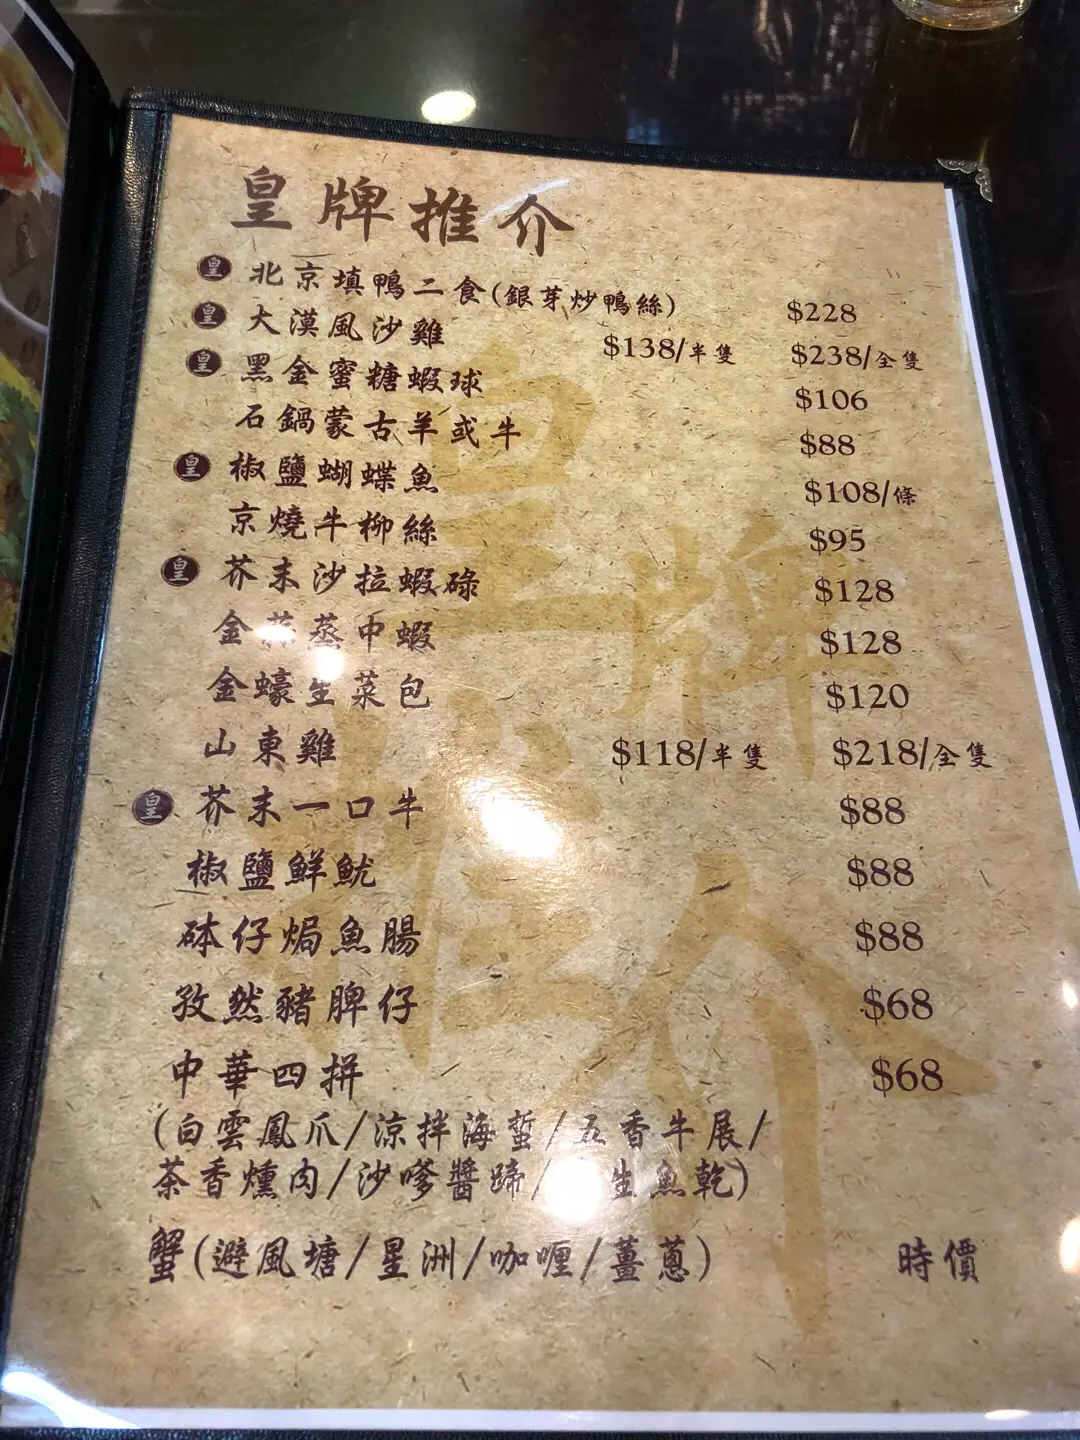 皇牌推介
皇 北京填鴨二食(銀芽炒鴨絲) $228
皇 大漠風沙雞 $138/半隻 $238/全隻
皇 黑金蜜糖蝦球 $106
石鍋蒙古羊或牛 $88
皇 椒鹽蝴蝶魚 $108/條
京燒牛柳絲 $95
皇 芥末沙拉蝦碌 $128
金蒜蒸中蝦 $128
金蠔生菜包 $120
山東雞 $118/半隻 $218/全隻
皇 芥末一口牛 $88
椒鹽鮮魷 $88
砵仔焗魚腸 $88
孜然豬脾仔 $68
中華四拼 $68
(白雲鳳爪/涼拌海蜇/五香牛展/
茶香燻肉/沙嗲醬蹄/生魚乾)
蟹(避風塘/星洲/咖喱/薑蔥) 時價
皇牌推介